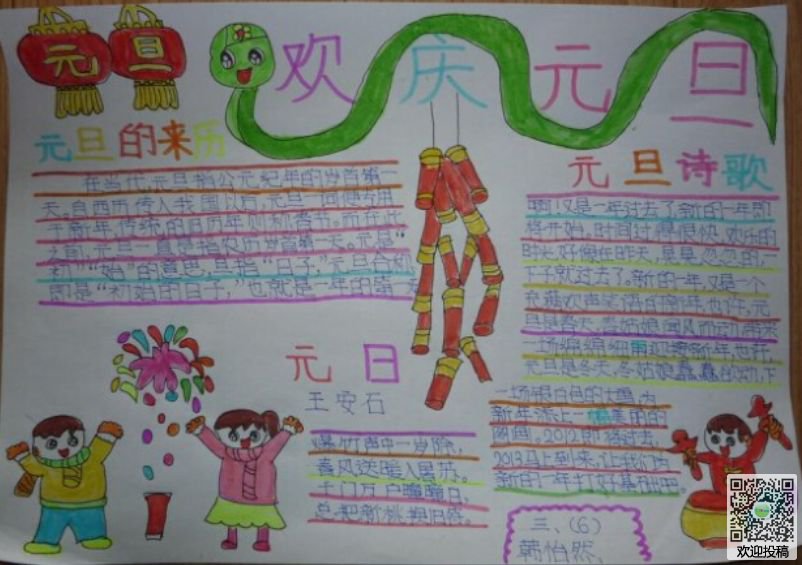 元旦
欢庆元旦
元旦的来历
在当代,元旦指公元纪年的岁首第一
天。自西历传入我国以后,元旦一词便专用
于新年,传统的旧历年则称春节。而在此
之前,元旦一直是指农历岁首第一天。元是“
初”“始”的意思,旦指“日子”,元旦合称
即是“初始的日子,”也就是一年的第一天
元旦诗歌
啊!又是一年过去了新的一年即
将开始,时间过得很快,欢乐的
时光好像在昨天,是是忽忽的,一
下子就过去了。新的一年,又是一个
充满欢声笑语的新年,也许,元
旦是春天,春姑娘闻风而动,带来
一场绵绵细雨迎接新年,也许,
元旦是冬天,冬姑娘蠢蠢欲动,下
一场银白色的大雪,为
新年添上一幅美丽的
图画。2012即将过去,
2013马上到来,让我们为
新的一年打好基础吧。
元日
王安石
爆竹声中一岁除,
春风送暖入屠苏。
千门万户曈曈日,
总把新桃换旧符。
三、(6)
韩怡然、
欢迎投稿